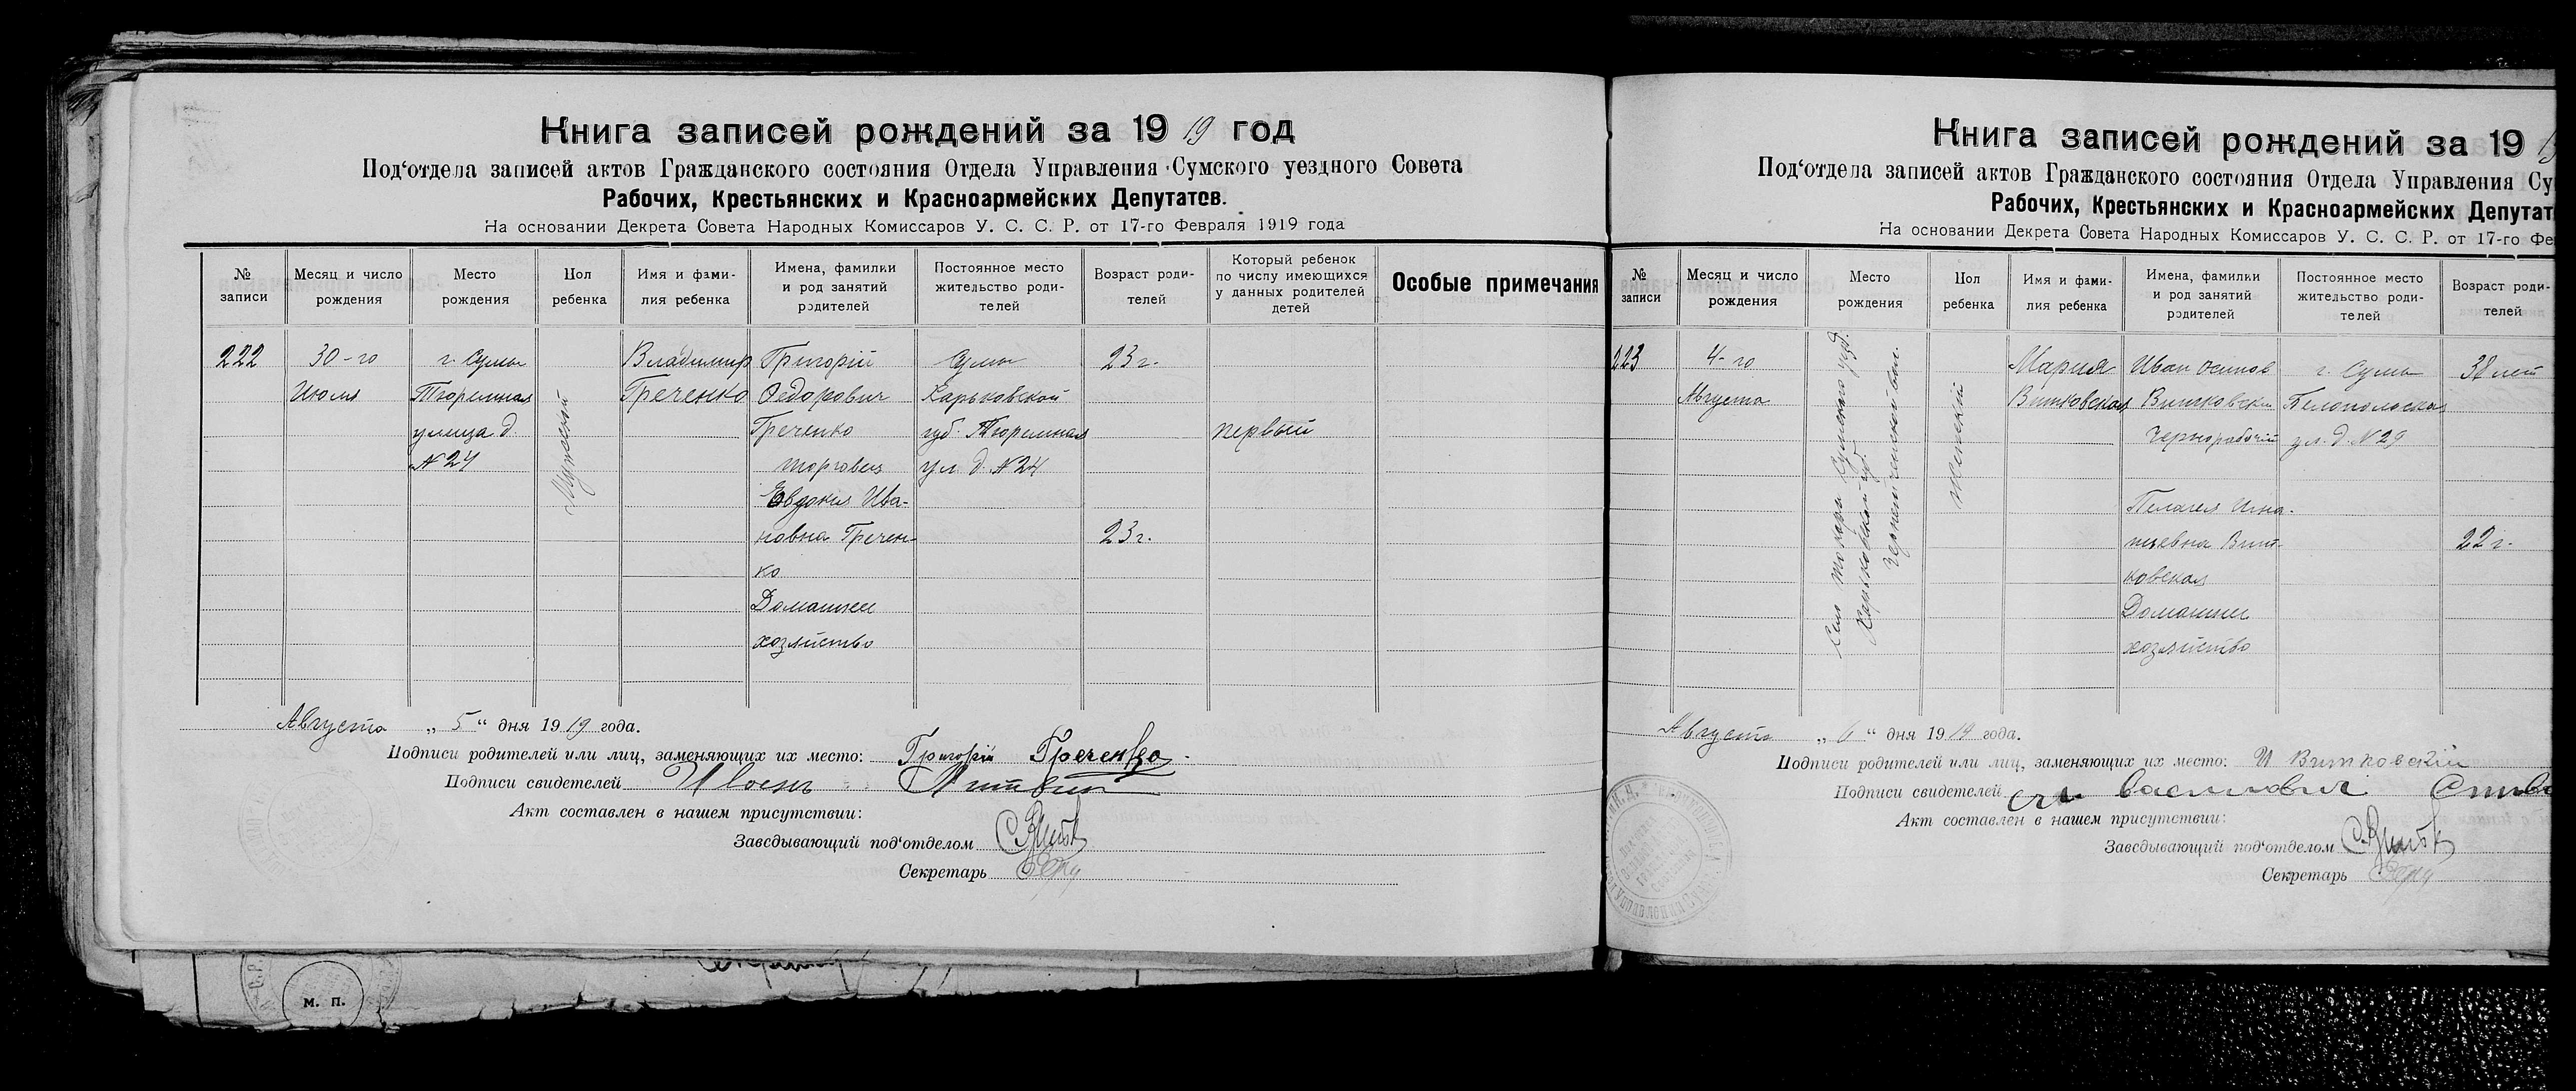 Книга записей рождений за 1919 год
Под‘отдела записей актов Гражданского состояния Отдела Управления Сумского уездного Совета
Рабочих, Крестьянских и Красноармейских Депутатов.
На основании Декрета Совета Народных Комиссаров У. С. С. Р. от 17-го Февраля 1919 года
№ записи
Месяц и число рождения
Место рождения
Пол ребенка
Имя и фами-
лия ребенка
Имена, фамилии
и род занятий
родителей
Постоянное место
жительство роди-
телей
Возраст роди-
телей
Который ребенок
по числу имеющихся
у данных родителей
детей
Особые примечания
222
30-го
Июля
г. Сумы
Тюремная
улица д.
№ 24
Мужской
Владимир
Греченко
Григорій
Федорович
Греченко
торговец
Евдокия Ива-
новна Гречен-
ко
Домашнее
хозяйство
Сумы
Харьковской
губ. Тюремная
ул. д. № 24
23 г.
23 г.
первый
Августа „ 5 “ дня 1919 года.
Подписи родителей или лиц, заменяющих их место: Григорій Греченко
Подписи свидетелей
Акт составлен в нашем присутствии:
Заведывающий под‘отделом
Секретарь
м. п.
Книга записей рождений за 19
Под‘отдела записей актов Гражданского состояния Отдела Управления Су
Рабочих, Крестьянских и Красноармейских Депутат
На основании Декрета Совета Народных Комиссаров У. С. С. Р. от 17-го Фе
№ записи
Месяц и число
рождения
Место
рождения
Пол
ребенка
Имя и фами-
лия ребенка
Имена, фамилии
и род занятий
родителей
Постоянное место
жительство роди-
телей
Возраст роди-
телей
223
4-го
Августа
Сумского уезд.
Харьковской губ.
Женский
Мария
Витковская
Иван Осипов
Витковский
Чернорабочій
Пелагея Игна-
тьевна Вит-
ковская
Домашнее
хозяйство
г. Сумы
Белопольская
ул. д. № 29
38 лет
22 г.
Августа „ 6 “ дня 1919 года.
Подписи родителей или лиц, заменяющих их место: И Витковский
Подписи свидетелей
Акт составлен в нашем присутствии:
Заведывающий под‘отделом
Секретарь